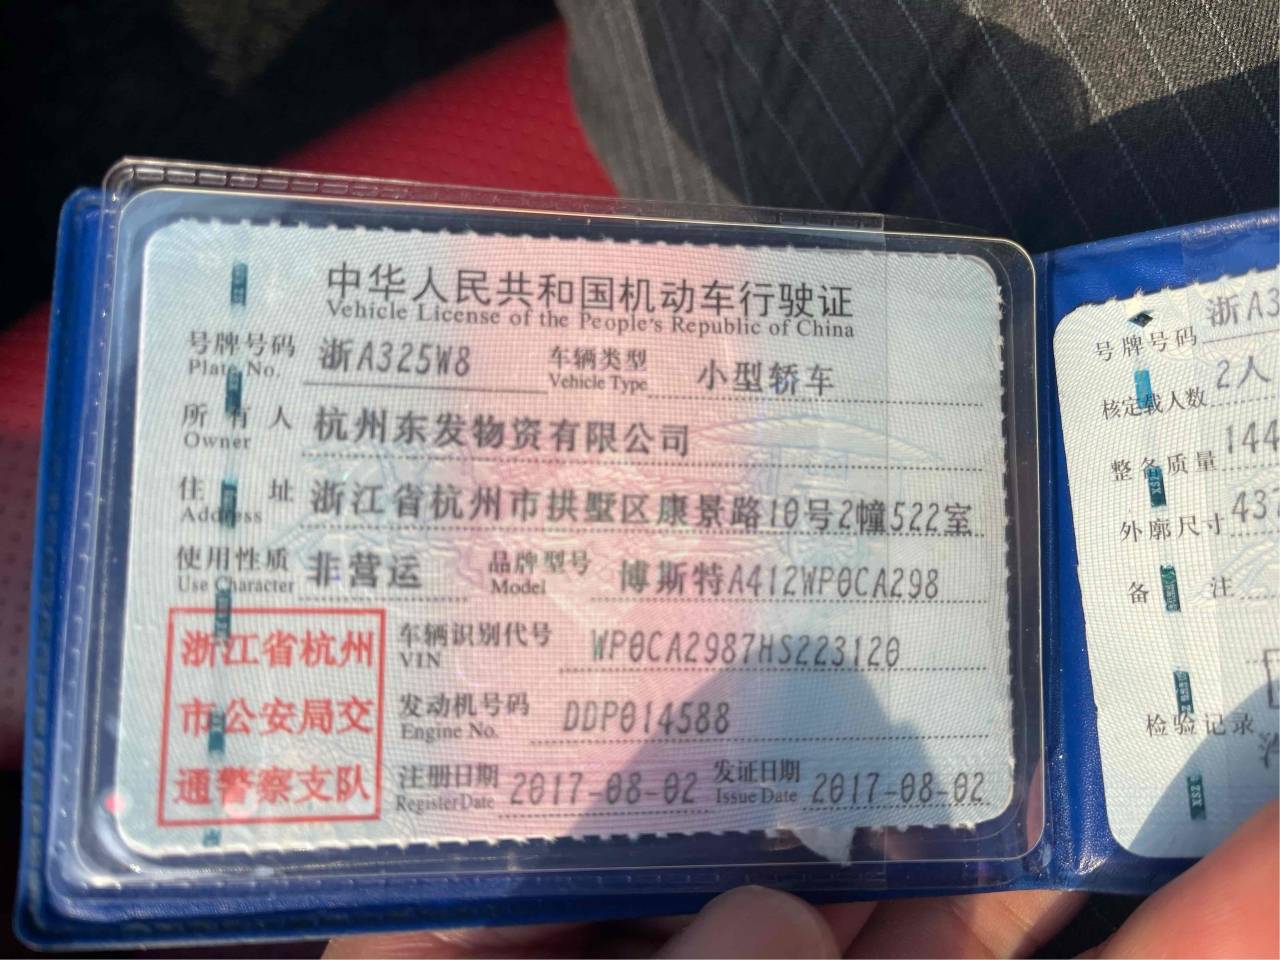 中华人民共和国机动车行驶证
Vehicle License of the People's Republic of China
号牌号码 浙A325W8 车辆类型 小型轿车
Plate No. Vehicle Type
所有人 杭州东发物资有限公司
Owner
住址 浙江省杭州市拱墅区康景路10号2幢522室
Address
使用性质 非营运 品牌型号 博斯特A412WP0CA298
Use Character Model
浙江省杭州
市公安局交
通警察支队
车辆识别代号 WP0CA2987HS223120
VIN
发动机号码 DDP014588
Engine No.
注册日期 2017-08-02 发证日期 2017-08-02
Register Date Issue Date
号牌号码 浙A3
核定载人数 2人
整备质量 144
外廓尺寸 43
备注
检验记录